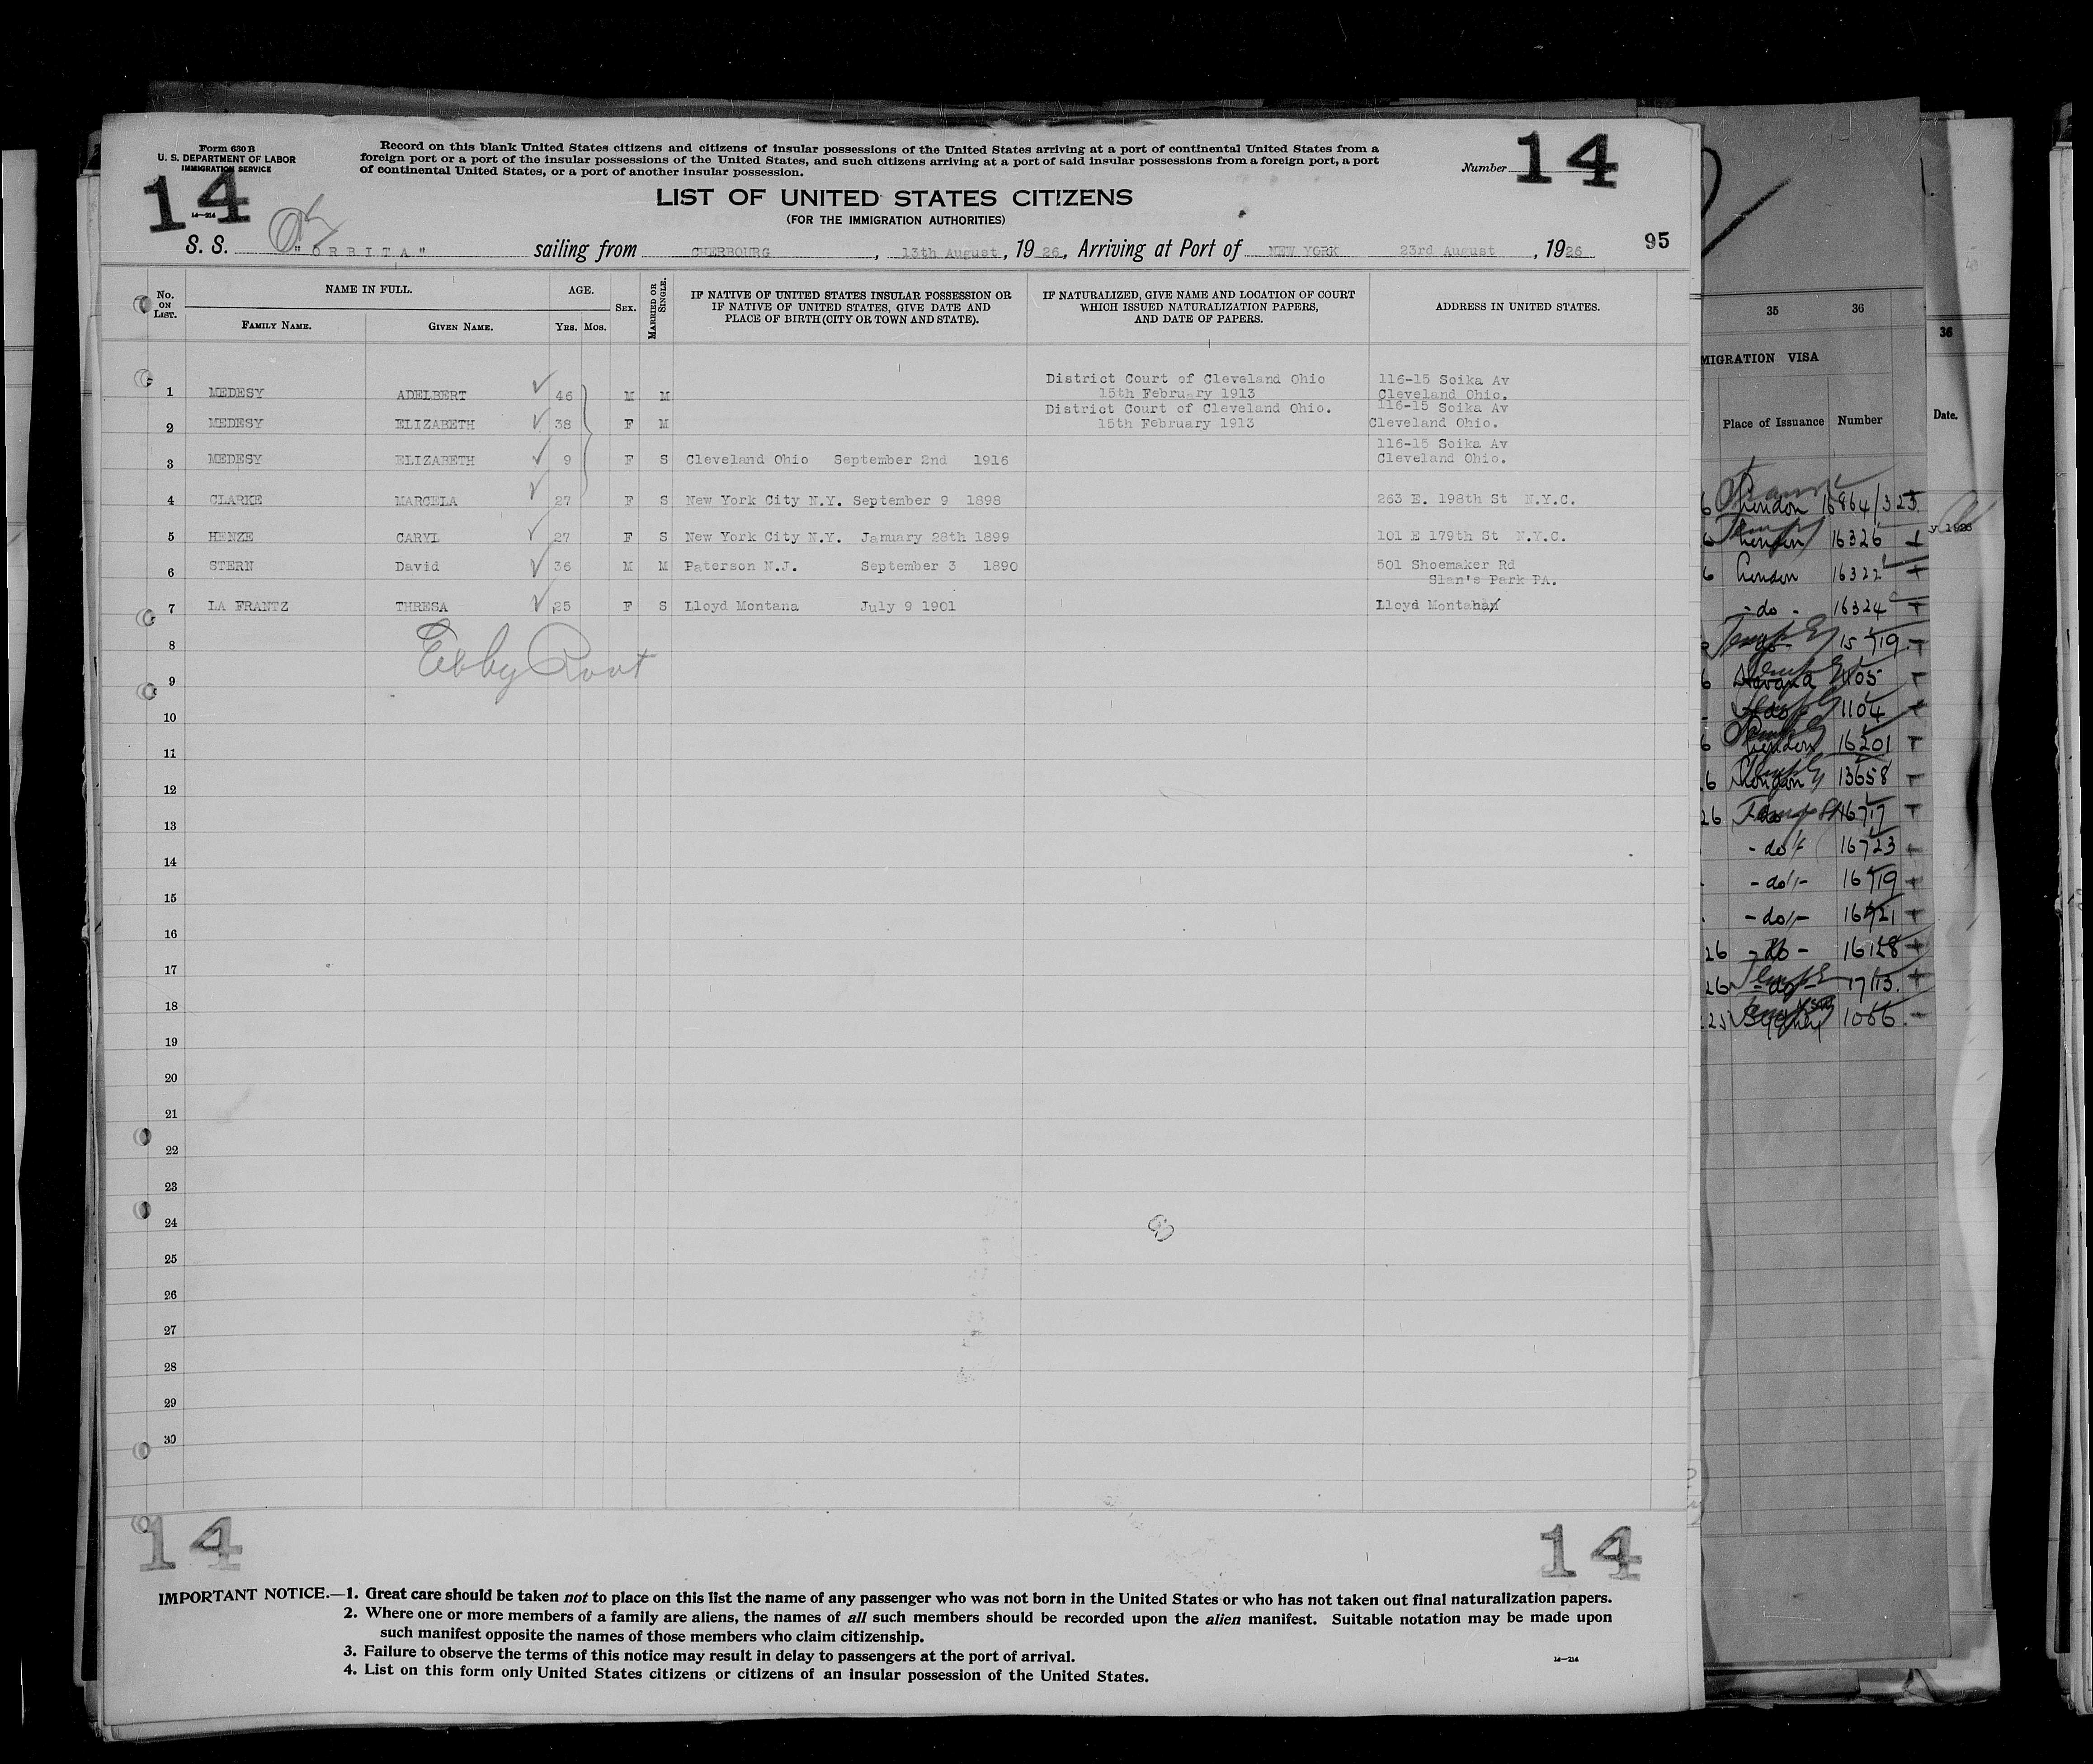 Form 630 B
U. S. DEPARTMENT OF LABOR
IMMIGRATION SERVICE
14
14—214
Record on this blank United States citizens and citizens of insular possessions of the United States arriving at a port of continental United States from a
foreign port or a port of the insular possessions of the United States, and such citizens arriving at a port of said insular possessions from a foreign port, a port
of continental United States, or a port of another insular possession.
Number 14
LIST OF UNITED STATES CITIZENS
(FOR THE IMMIGRATION AUTHORITIES)
S. S. "ORBITA" sailing from CHERBOURG, 13th August, 1926, Arriving at Port of NEW YORK 23rd August, 1926
95
No. ON LIST.
NAME IN FULL.
FAMILY NAME. GIVEN NAME.
AGE.
YRS. MOS.
SEX.
MARRIED OR SINGLE.
IF NATIVE OF UNITED STATES INSULAR POSSESSION OR
IF NATIVE OF UNITED STATES, GIVE DATE AND
PLACE OF BIRTH (CITY OR TOWN AND STATE).
IF NATURALIZED, GIVE NAME AND LOCATION OF COURT
WHICH ISSUED NATURALIZATION PAPERS,
AND DATE OF PAPERS.
ADDRESS IN UNITED STATES.
District Court of Cleveland Ohio 116-15 Soika Av
1 MEDESY ADELBERT 46 M M 15th February 1913 Cleveland Ohio.
District Court of Cleveland Ohio. 116-15 Soika Av
2 MEDESY ELIZABETH 38 F M 15th February 1913 Cleveland Ohio.
116-15 Soika Av
3 MEDESY ELIZABETH 9 F S Cleveland Ohio September 2nd 1916 Cleveland Ohio.
4 CLARKE MARCELA 27 F S New York City N.Y. September 9 1898 263 E. 198th St N.Y.C.
5 HENZE CARYL 27 F S New York City N.Y. January 28th 1899 101 E 179th St N.Y.C.
6 STERN David 36 M M Paterson N.J. September 3 1890 501 Shoemaker Rd
Slan's Park PA.
7 LA FRANTZ THRESA 25 F S Lloyd Montana July 9 1901 Lloyd Montana
8
9
10
11
12
13
14
15
16
17
18
19
20
21
22
23
24
25
26
27
28
29
30
14
14
IMPORTANT NOTICE.—1. Great care should be taken not to place on this list the name of any passenger who was not born in the United States or who has not taken out final naturalization papers.
2. Where one or more members of a family are aliens, the names of all such members should be recorded upon the alien manifest. Suitable notation may be made upon
such manifest opposite the names of those members who claim citizenship.
3. Failure to observe the terms of this notice may result in delay to passengers at the port of arrival.
4. List on this form only United States citizens or citizens of an insular possession of the United States.
14—214
35 36
36
MIGRATION VISA
Place of Issuance Number
Date.
London 16864/325
London 16326
London 16322
- do - 16324
1105
1104
London 16201
13658
- do - 16723
- do - 16719
- do - 16721
26 - do - 16128
26 - do - 1713
Sydney 1066